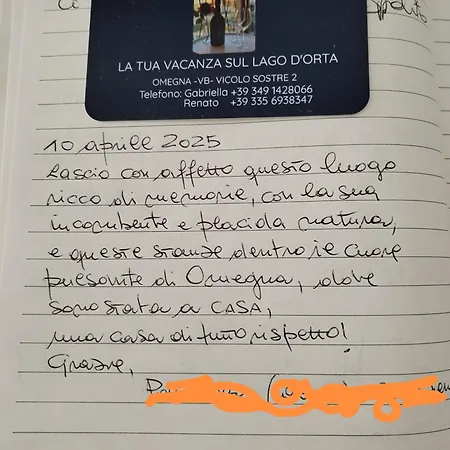 LA TUA VACANZA SUL LAGO D'ORTA
OMEGNA -VB- VICOLO SOSTRE 2
Telefono: Gabriella +39 349 1428066
Renato +39 335 6938347
10 aprile 2025
Lascio con affetto questo luogo
ricco di memorie, con la sua
incombente e placida natura,
e queste stanze dentro il cuore
pulsante di Omegna, dove
sono stata a CASA,
una casa di tutto rispetto!
Grazie,